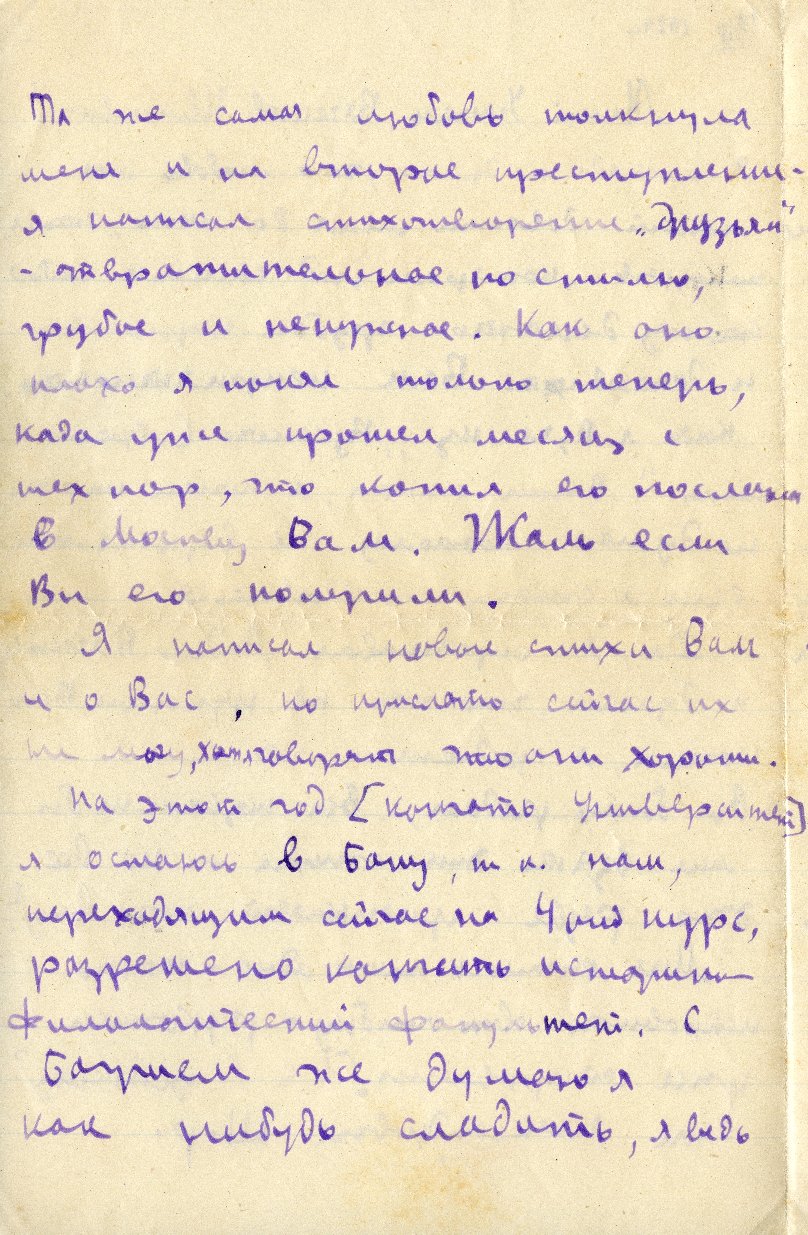 Та же самая любовь толкнула
меня и на второе преступление -
я написал стихотворение „Друзья"
- отвратительное по стилю,
грубое и ненужное. Как оно
плохо я понял только теперь,
када уже прошел месяц с
тех пор, что копия его послана
в Москву, Вам. Жаль если
Вы его получили.
Я написал новые стихи Вам
и о Вас, но прислать сейчас их
не могу, хотя говорят что они хороши.
На этот год [кончать Университет]
я остаюсь в Баку, т.к. нам,
переходящим сейчас на 4ый курс,
разрешено кончать историко-
филологический факультет. С
Баушем же думаю я
как нибудь сладить, я ведь